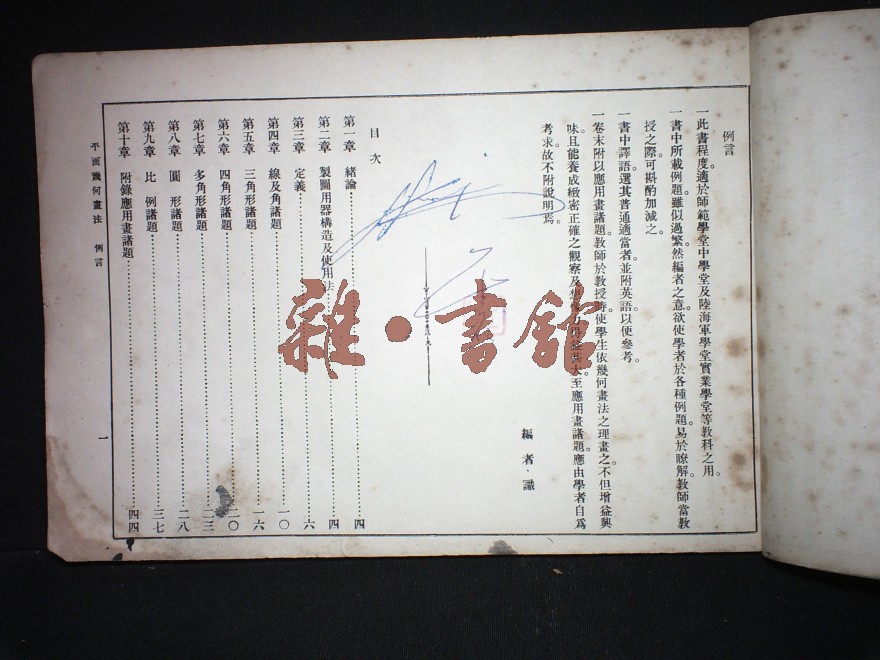 例言
一此書程度。適於師範學堂中學堂及陸海軍學堂實業學堂等教科之用。
一書中所載例題。雖似過繁。然編者之意。欲使學者於各種例題。易於瞭解。教師當教
授之際。可斟酌加減之。
一書中譯語。選其普通適當者。並附英語。以便參考。
一卷末附以應用畫諸題。教師於教授時。使學生依幾何畫法之理畫之。不但增益興
味。且能養成緻密正確之觀察及 至應用畫諸題。應由學者自爲
考求。故不附說明焉。
編者識
目次
第一章 緒論 四
第二章 製圖用器構造及使用法 四
第三章 定義 六
第四章 線及角諸題 一〇
第五章 三角形諸題 一六
第六章 四角形諸題 二〇
第七章 多角形諸題 二三
第八章 圜形諸題 二八
第九章 比例諸題 三七
第十章 附錄應用畫諸題 四四
平面幾何畫法 例言 一
雜·書館